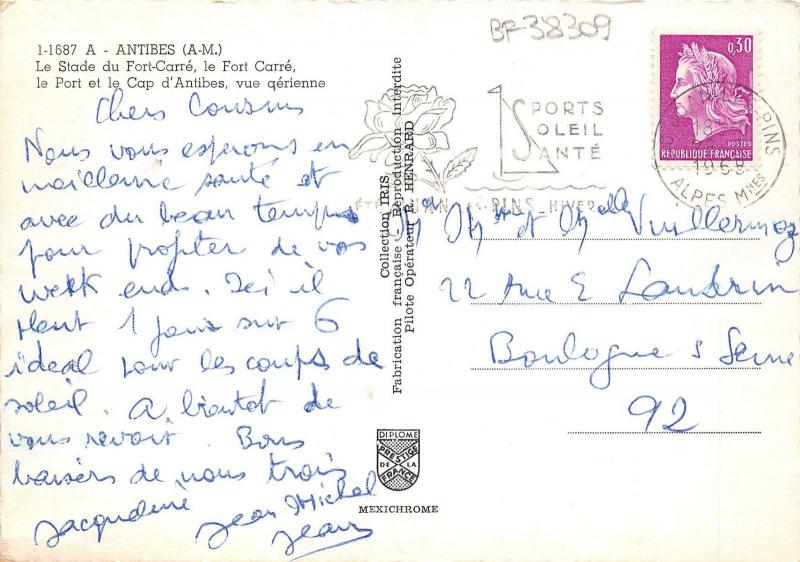 BF38309
1-1687 A - ANTIBES (A-M.)
Le Stade du Fort-Carré, le Fort Carré,
le Port et le Cap d'Antibes, vue qérienne
Chers Cousins
Nous vous espérons en
meilleure santé et
avec du beau temps
pour profiter de vos
week ends. Ici il
pleut 1 jour sur 6
idéal pour les coups de
soleil. A bientot de
vous revoir. Bons
baisers de nous trois
Jacqueline Jean Michel
Jean
Collection IRIS
Fabrication française - Reproduction interdite
Pilote Opérateur R. HENRARD
DIPLOME
PRESTIGE
DE LA
FRANCE
MEXICHROME
SPORTS
SOLEIL
SANTÉ
ÉTÉ JUAN-LES-PINS HIVER
0,30
POSTES
REPUBLIQUE FRANÇAISE
PINS
1968
ALPES Mmes
M Me et Melle Vuillermoz
22 Rue E Landrin
Boulogne s Seine
92